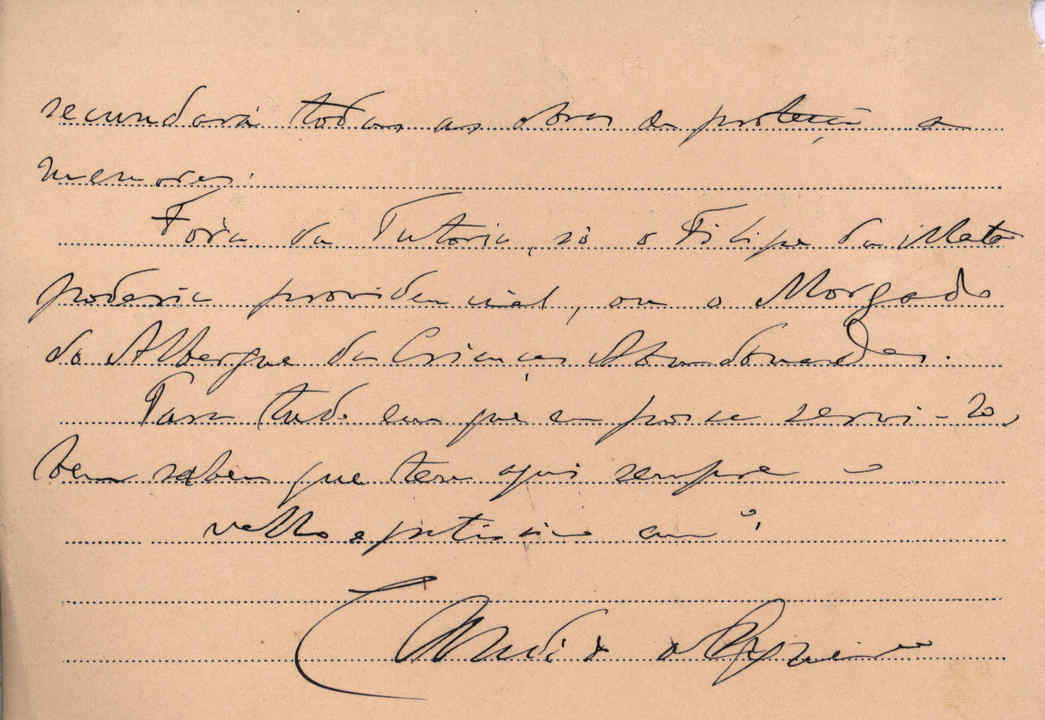 secundará todas as obras de proteção a
menores.
Fóra da Tutoria, só o Filipe da Mata
poderia providencial, ou o Morgado
do Albergue das Crianças Abandonadas.
Para tudo em que eu possa servi-lo,
bem sabem que tem aqui sempre o
velho e am.º
Candido de Figueiredo